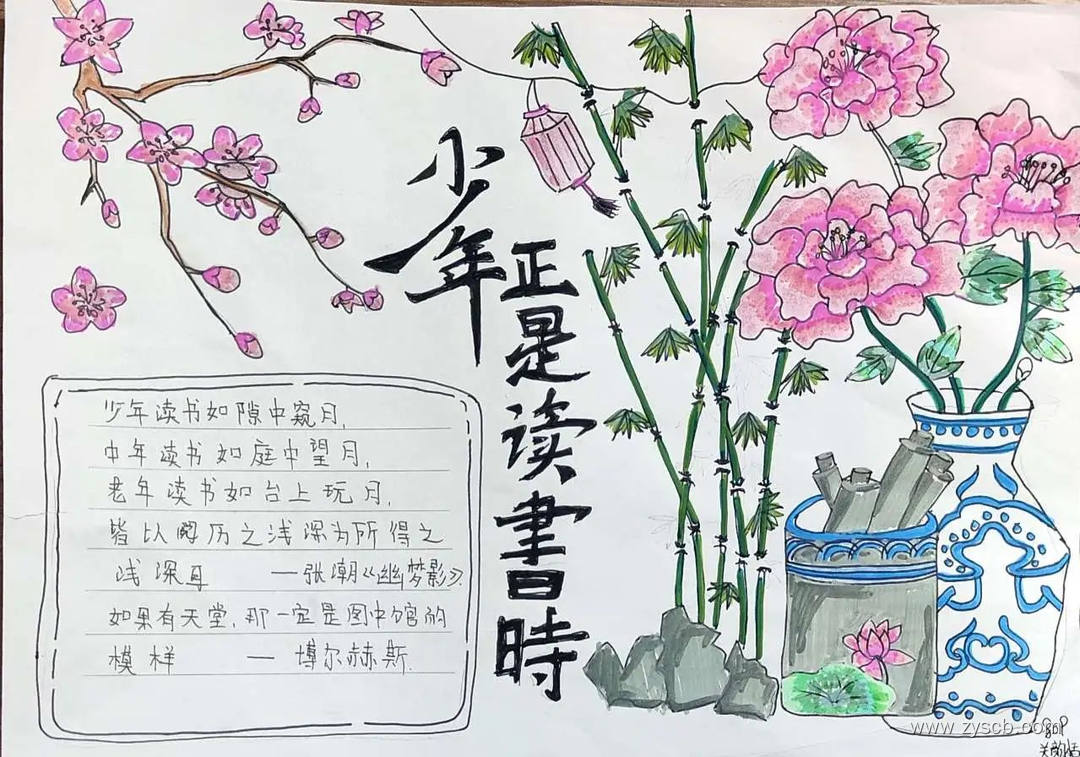 少年
正是读書時
少年读书如隙中窥月,
中年读书如庭中望月,
老年读书如台上玩月,
皆以阅历之浅深为所得之
浅深耳 —张潮《幽梦影》.
如果有天堂,那一定是图书馆的
模样 — 博尔赫斯.
www.zyscb.com